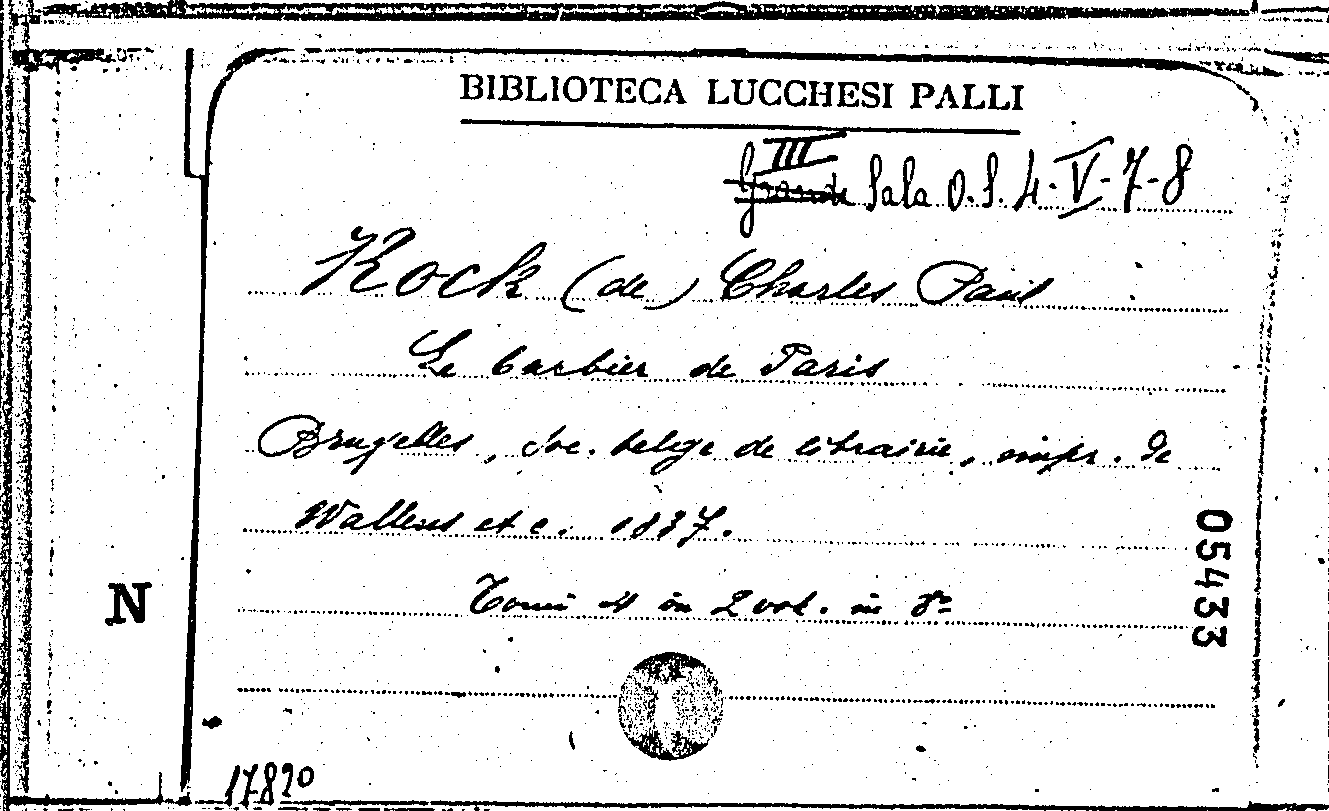 BIBLIOTECA LUCCHESI PALLI
III
Grande Sala O.S. 4-V-7-8
Kock (de) Charles Paul
Le barbier de Paris
Bruxelles, Soc. belge de librairie, impr. de
Wallens etc. 1837.
Tomi 4 in 2 vol. in 8º
N
05433
17820